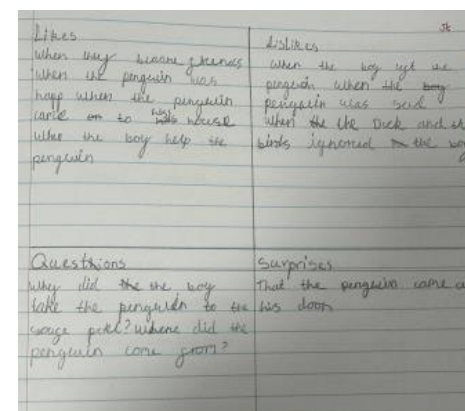 Likes
when they became friends
when the penguin was
happ when the penguin
came to his house
when the boy help the
penguin
dislikes
when the boy left the
penguin when the boy
penguin was sad
when the the Duck and th
birds ignored the bo
Questhions
why did the the boy
take the penguin to the
? where did the
penguin come from?
surprises
That the penguin came a
his door